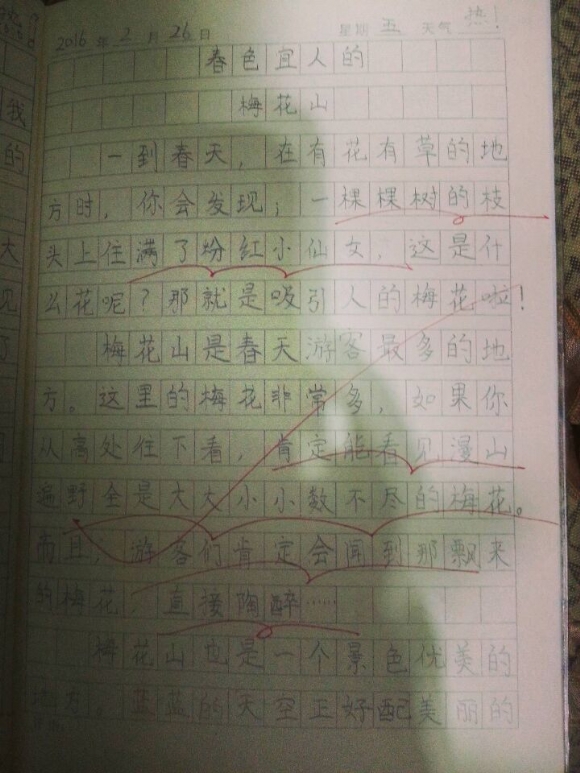 2016 年 2 月 26 日 星期 五 天气 热!
春色宜人的
梅花山
一到春天，在有花有草的地
方时，你会发现；一棵棵树的枝
头上住满了粉红小仙女，这是什
么花呢？那就是吸引人的梅花啦！
梅花山是春天游客最多的地
方。这里的梅花非常多，如果你
从高处往下看，肯定能看见漫山
遍野全是大大小小数不尽的梅花。
而且，游客们肯定会闻到那飘来
的梅花，直接陶醉……
梅花山也是一个景色优美的
地方，蓝蓝的天空正好配美丽的
我
的
大
见